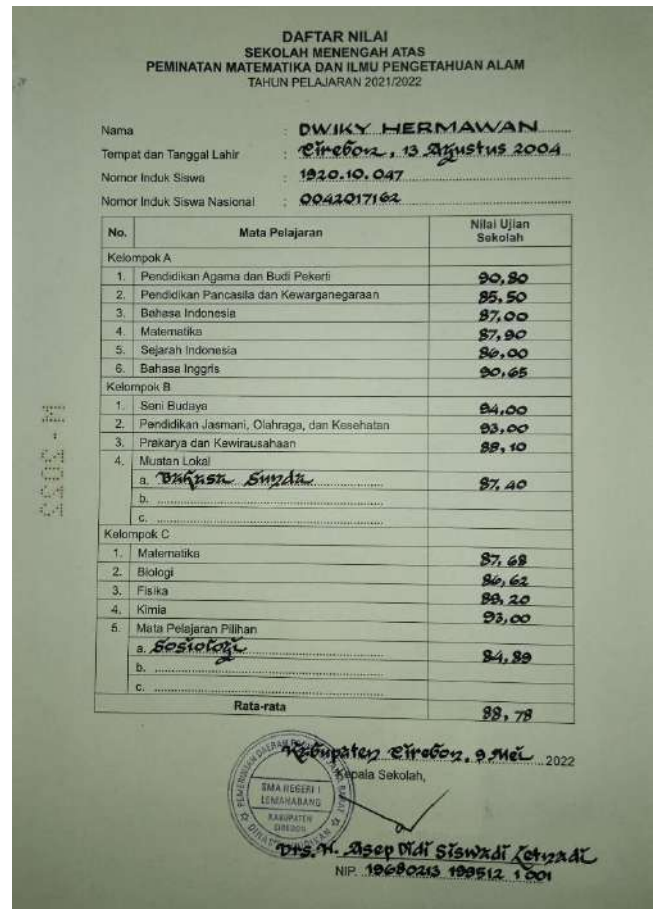 DAFTAR NILAI
SEKOLAH MENENGAH ATAS
PEMINATAN MATEMATIKA DAN ILMU PENGETAHUAN ALAM
TAHUN PELAJARAN 2021/2022
Nama : DWIKY HERMAWAN
Tempat dan Tanggal Lahir : Cirebon, 13 Agustus 2004
Nomor Induk Siswa : 1920.10.047
Nomor Induk Siswa Nasional : 0042017162
No. Mata Pelajaran Nilai Ujian Sekolah
Kelompok A
1. Pendidikan Agama dan Budi Pekerti 90,80
2. Pendidikan Pancasila dan Kewarganegaraan 85,50
3. Bahasa Indonesia 87,00
4. Matematika 87,90
5. Sejarah Indonesia 86,00
6. Bahasa Inggris 90,65
Kelompok B
1. Seni Budaya 94,00
2. Pendidikan Jasmani, Olahraga, dan Kesehatan 93,00
3. Prakarya dan Kewirausahaan 88,10
4. Muatan Lokal
a. Bahasa Sunda 87,40
b.
c.
Kelompok C
1. Matematika 87,68
2. Biologi 86,62
3. Fisika 88,20
4. Kimia 93,00
5. Mata Pelajaran Pilihan
a. Sosiologi 84,89
b.
c.
Rata-rata 88,78
Kabupaten Cirebon, 9 Mei 2022
Kepala Sekolah,
SMA NEGERI 1
LEMAHABANG
KABUPATEN
CIREBON
DINAS PENDIDIKAN
Drs. H. Asep Didi Siswadi
NIP. 19680213 199512 1 001